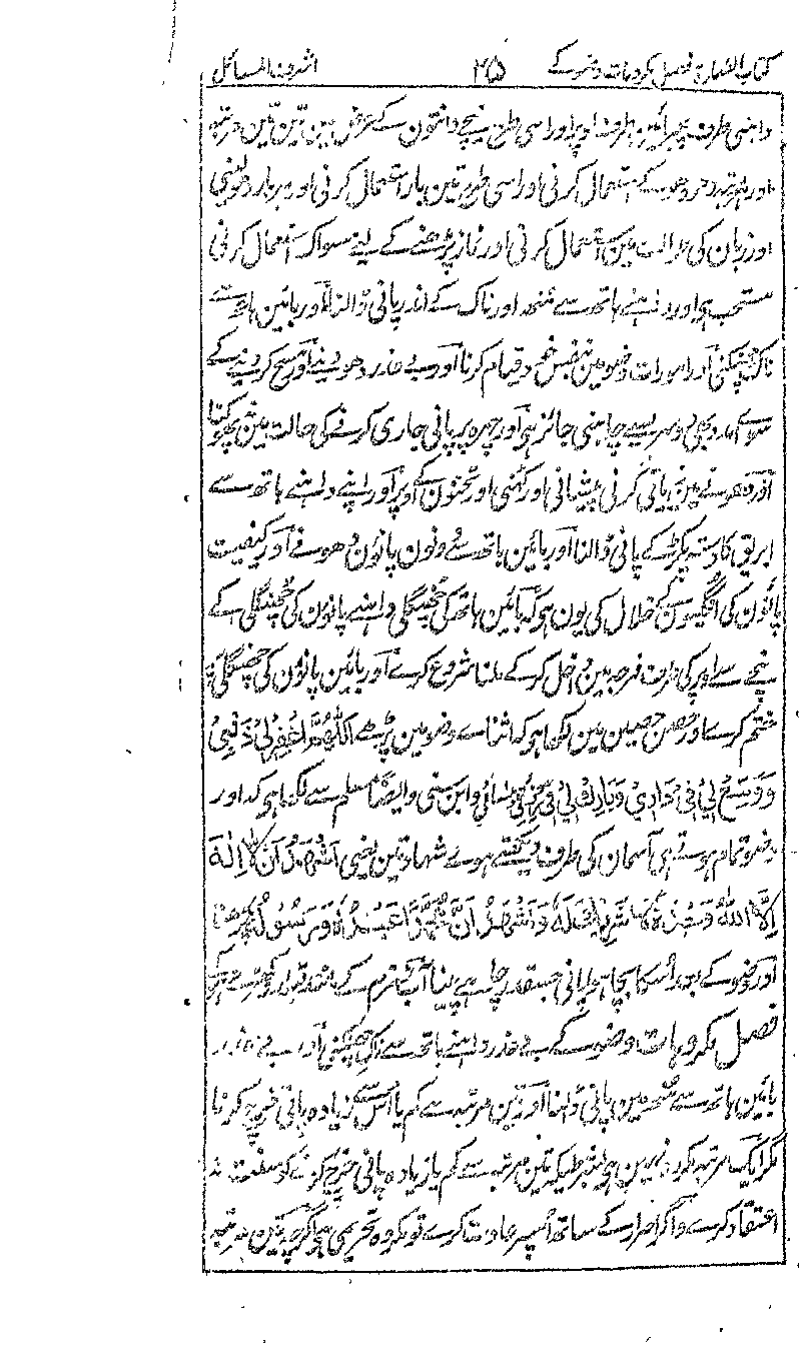 کتاب الطہارة فصل مکروہات وضو کے ۲۵ اشرف المسائل
داہنی طرف پھر بائین طرف اوپر اور اسی طرح نیچے دانتون کے عرض مین تین تین مرتبہ
اور ہر مرتبہ دھو کے استعمال کرنی اور اسی طرح تین بار استعمال کرنی اور ہر بار دھولینی
اور زبان کی حالت مین استعمال کرنی اور نماز پڑھنے کے لیے مسواک استعمال کرنی
مستحب ہو اور داہنے ہاتھ سے منھ اور ناک کے اندر پانی ڈالنا اور بائین ہاتھ سے
ناک چھنکنی اور امورات وضو مین بنفس خود قیام کرنا اور بے عذر دھو دینے اور مسح کر دینے کے
سوائے امداد بھی دوسرے سے چاہنی جائز ہو اور چہرہ پر پانی جاری کرنے کی حالت مین
اور دھوتے مین باقی کرنی پیشانی اور کہنی اور ٹخنون کے اوپر اور اپنے داہنے ہاتھ سے
ابریق کا دستہ پکڑ کے پانی ڈالنا اور بائین ہاتھ سے دونون پانؤن دھونے اور کیفیت
پانؤن کی انگلیون کے خلال کی یون ہو کہ بائین ہاتھ کی چھنگلی داہنے پانؤن کی چھنگلی کے
نیچے سے اوپر کی طرف فرجہ مین داخل کر کے ملنا شروع کرے اور بائین پانؤن کی چھنگلی پر
ختم کرے اور حصن حصین مین لکھا ہو کہ اثنائے وضو مین پڑھے اَللّٰهُمَّ اغْفِرْ لِیْ ذَنْبِیْ
وَوَسِّعْ لِیْ فِیْ دَارِیْ وَبَارِكْ لِیْ فِیْ رِزْقِیْ نسائی وابن سنی وایضاً مسلم سے لکھا ہو کہ اور
وضو تمام ہوتے ہی آسمان کی طرف دیکھتے ہوے شہادتین یعنی اَشْهَدُ اَنْ لَّا اِلٰهَ
اِلَّا اللّٰهُ وَحْدَهٗ لَا شَرِیْكَ لَهٗ وَاَشْهَدُ اَنَّ مُحَمَّدًا عَبْدُهٗ وَرَسُوْلُهٗ پڑھنا
اور وضو کے بعد اسکا بچا ہوا پانی جسقدر چاہے پینا آب زمزم کے مانند قبلہ رو کھڑے ہو کر
فصل مکروہات وضو کے بے عذر داہنے ہاتھ سے ناک چھنکنی اور بے عذر
بائین ہاتھ سے منھ مین پانی ڈالنا اور تین مرتبہ سے کم یا اس سے زیادہ پانی خرچ کرنا
مگر ایک مرتبہ مکروہ نہین ہو بشرطیکہ تین مرتبہ سے کم یا زیادہ پانی خرچ کرنے کو سنت نہ
اعتقاد کرے واگر اصرار کے ساتھ اسپر عادت کرے تو مکروہ تحریمی ہو اگرچہ تین مرتبہ